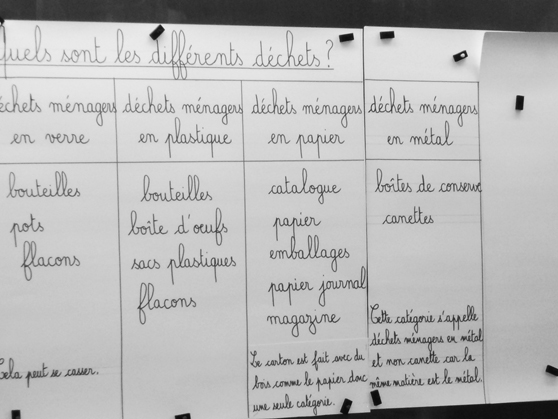 quels sont les différents déchets?
déchets ménagers
en verre
bouteilles
pots
flacons
Cela peut se casser.
déchets ménagers
en plastique
bouteilles
boîte d'oeufs
sacs plastiques
flacons
déchets ménagers
en papier
catalogue
papier
emballages
papier journal
magazine
Le carton est fait avec du
bois comme le papier donc
une seule catégorie.
déchets ménagers
en métal
boîtes de conserve
canettes
Cette catégorie s'appelle
déchets ménagers en métal
et non canette car la
même matière est le métal.